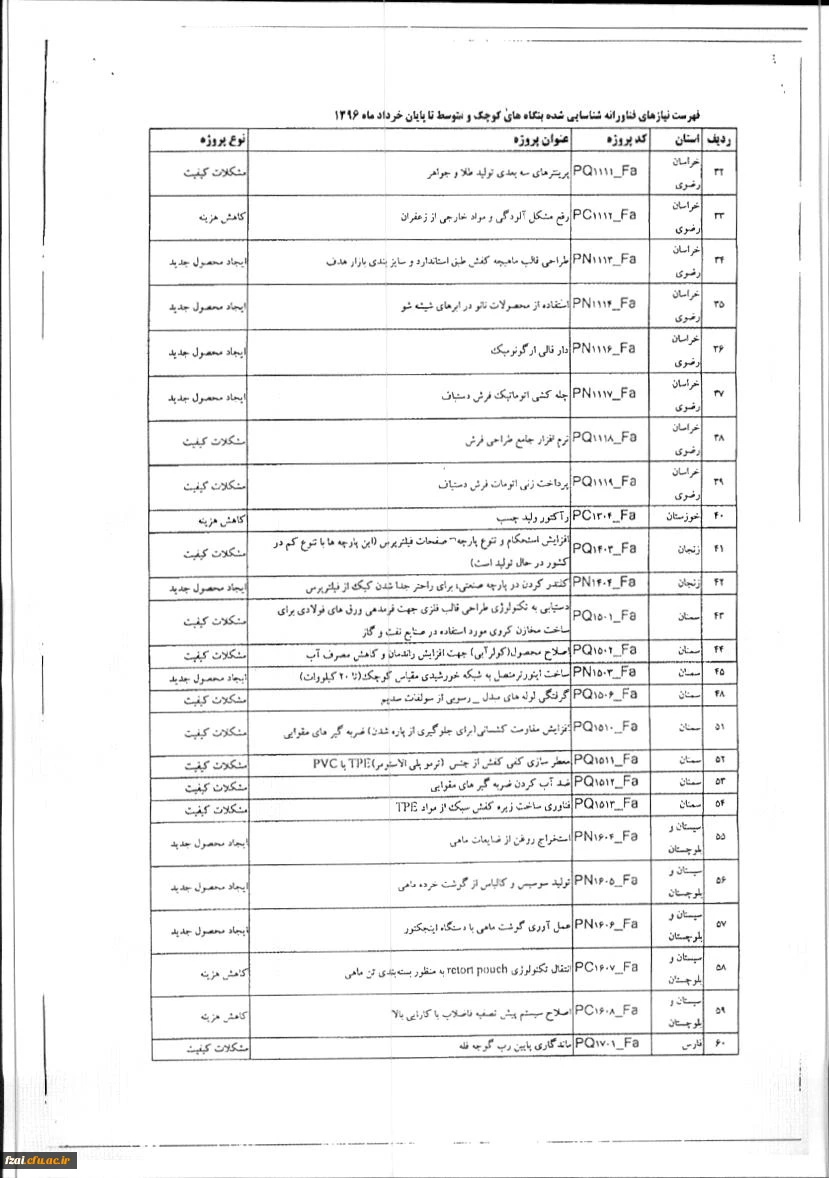 فهرست نیازهای فناورانه شناسایی شده بنگاه های کوچک و متوسط تا پایان خرداد ماه ۱۳۹۶
ردیف استان کد پروژه عنوان پروژه نوع پروژه
۳۲ خراسان رضوی PQ۱۱۱۱_Fa پرینترهای سه بعدی تولید طلا و جواهر مشکلات کیفیت
۳۳ خراسان رضوی PC۱۱۱۲_Fa رفع مشکل آلودگی و مواد خارجی از زعفران کاهش هزینه
۳۴ خراسان رضوی PN۱۱۱۳_Fa طراحی قالب ماهیچه کفش طبق استاندارد و سایز بندی بازار هدف ایجاد محصول جدید
۳۵ خراسان رضوی PN۱۱۱۴_Fa استفاده از محصولات نانو در ابرهای شیشه شو ایجاد محصول جدید
۳۶ خراسان رضوی PN۱۱۱۶_Fa دار قالی ارگونومیک ایجاد محصول جدید
۳۷ خراسان رضوی PN۱۱۱۷_Fa چله کشی اتوماتیک فرش دستباف ایجاد محصول جدید
۳۸ خراسان رضوی PQ۱۱۱۸_Fa نرم افزار جامع طراحی فرش مشکلات کیفیت
۳۹ خراسان رضوی PQ۱۱۱۹_Fa پرداخت زنی اتومات فرش دستباف مشکلات کیفیت
۴۰ خوزستان PC۱۳۰۴_Fa رآکتور ولید چسب کاهش هزینه
۴۱ زنجان PQ۱۴۰۳_Fa افزایش استحکام و تنوع پارچه صفحات فیلترپرس (این پارچه ها با تنوع کم در
کشور در حال تولید است) مشکلات کیفیت
۴۲ زنجان PN۱۴۰۴_Fa کلندر کردن در پارچه صنعتی، برای راحتر جدا شدن کیک از فیلترپرس ایجاد محصول جدید
۴۳ سمنان PQ۱۵۰۱_Fa دستیابی به تکنولوژی طراحی قالب فلزی جهت فرمدهی ورق های فولادی برای
ساخت مخازن کروی مورد استفاده در صنایع نفت و گاز مشکلات کیفیت
۴۴ سمنان PQ۱۵۰۲_Fa اصلاح محصول(کولرآبی) جهت افزایش راندمان و کاهش مصرف آب مشکلات کیفیت
۴۵ سمنان PN۱۵۰۳_Fa ساخت اینورترمتصل به شبکه خورشیدی مقیاس کوچک(تا ۲۰ کیلووات) ایجاد محصول جدید
۴۸ سمنان PQ۱۵۰۶_Fa گرفتگی لوله های مبدل _ رسوبی از سولفات سدیم مشکلات کیفیت
۵۱ سمنان PQ۱۵۱۰_Fa افزایش مقاومت کششانی(برای جلوگیری از پاره شدن) ضربه گیر های مقوایی مشکلات کیفیت
۵۲ سمنان PQ۱۵۱۱_Fa معطر سازی کفی کفش از جنس (ترمو پلی الاستومر)TPE یا PVC مشکلات کیفیت
۵۳ سمنان PQ۱۵۱۲_Fa ضد آب کردن ضربه گیر های مقوایی مشکلات کیفیت
۵۴ سمنان PQ۱۵۱۳_Fa فناوری ساخت زیره کفش سبک از مواد TPE مشکلات کیفیت
۵۵ سیستان و بلوچستان PN۱۶۰۴_Fa استخراج روغن از ضایعات ماهی ایجاد محصول جدید
۵۶ سیستان و بلوچستان PN۱۶۰۵_Fa تولید سوسیس و کالباس از گوشت خرده ماهی ایجاد محصول جدید
۵۷ سیستان و بلوچستان PN۱۶۰۶_Fa عمل آوری گوشت ماهی با دستگاه اینجکتور ایجاد محصول جدید
۵۸ سیستان و بلوچستان PC۱۶۰۷_Fa انتقال تکنولوژی retort pouch به منظور بسته‌بندی تن ماهی کاهش هزینه
۵۹ سیستان و بلوچستان PC۱۶۰۸_Fa اصلاح سیستم پیش تصفیه فاضلاب با کارایی بالا کاهش هزینه
۶۰ فارس PQ۱۷۰۱_Fa ماندگاری پایین رب گوجه فله مشکلات کیفیت
fzai.cfu.ac.ir